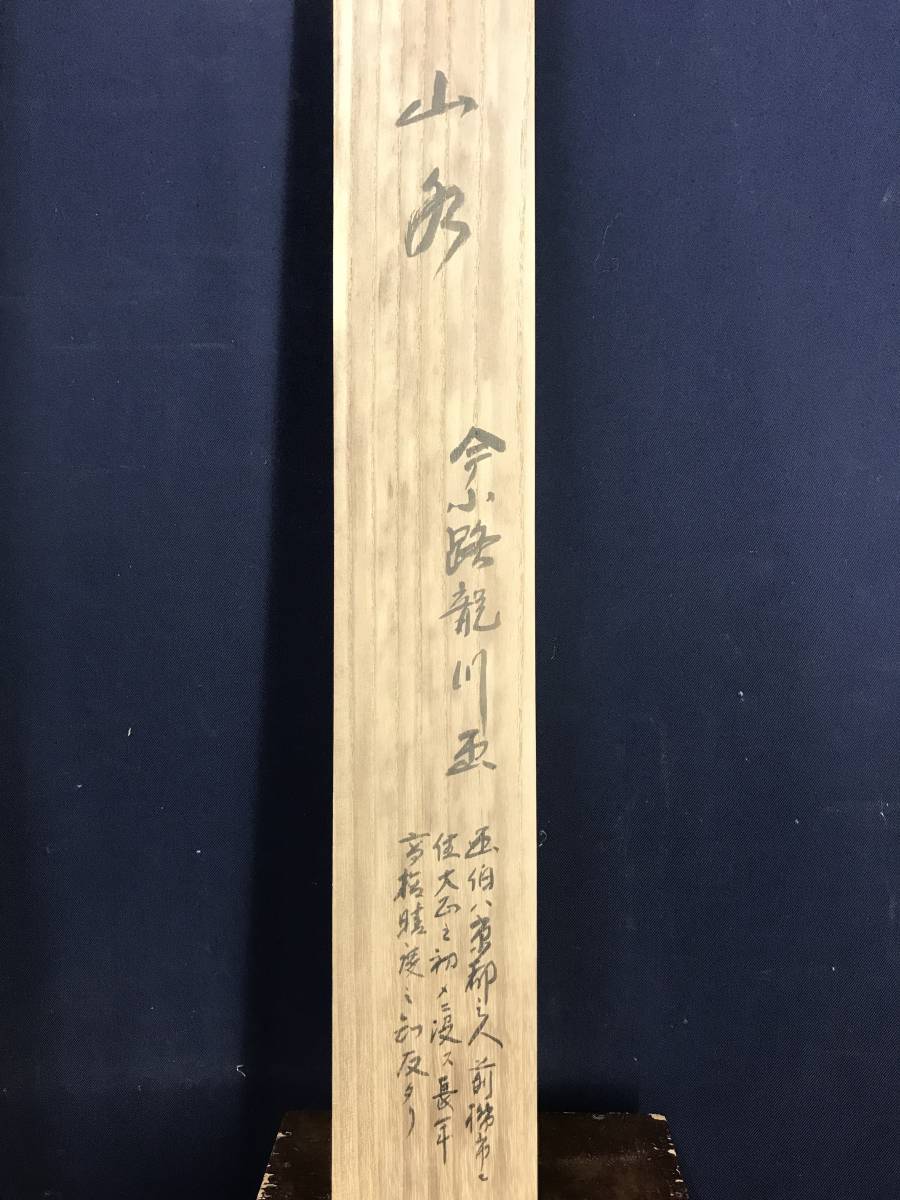 山水
今小路龍川画
画伯ハ京都之人前橋市ニ
住大正之初メニ没ス長年
高橋晴 之知友タリ